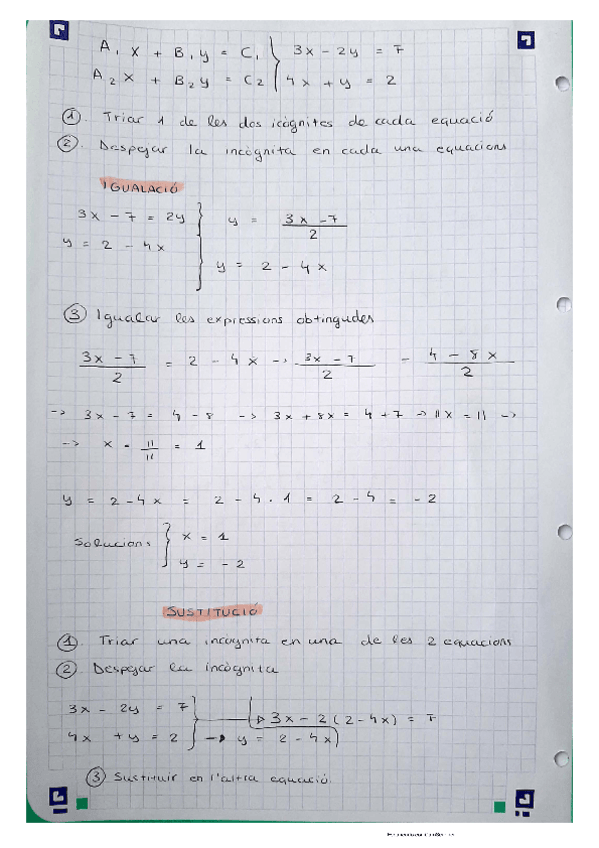 A₁ x + B₁ y = C₁ } 3x - 2y = 7
A₂ x + B₂ y = C₂ } 4x + y = 2
① . Triar 1 de les dos icògnites de cada equació
② . Despejar la incògnita en cada una equacions
IGUALACIÓ
3x - 7 = 2y } y = (3x - 7)/2
y = 2 - 4x } y = 2 - 4x
③ Igualar les expressions obtingudes
(3x - 7)/2 = 2 - 4x -> (3x - 7)/2 - (4 - 8x)/2
-> 3x - 7 = 4 - 8 -> 3x + 8x = 4 + 7 -> 11x = 11 ->
-> x = 11/11 = 1
y = 2 - 4x = 2 - 4 . 1 = 2 - 4 = - 2
Solucions { x = 1
y = - 2
SUSTITUCIÓ
① . Triar una incognita en una de les 2 equacions
② Despejar la incògnita
3x - 2y = 7 } -> 3x - 2(2 - 4x) = 7
4x + y = 2 } -> y = 2 - 4x
③ Sustituir en l'altra equació.